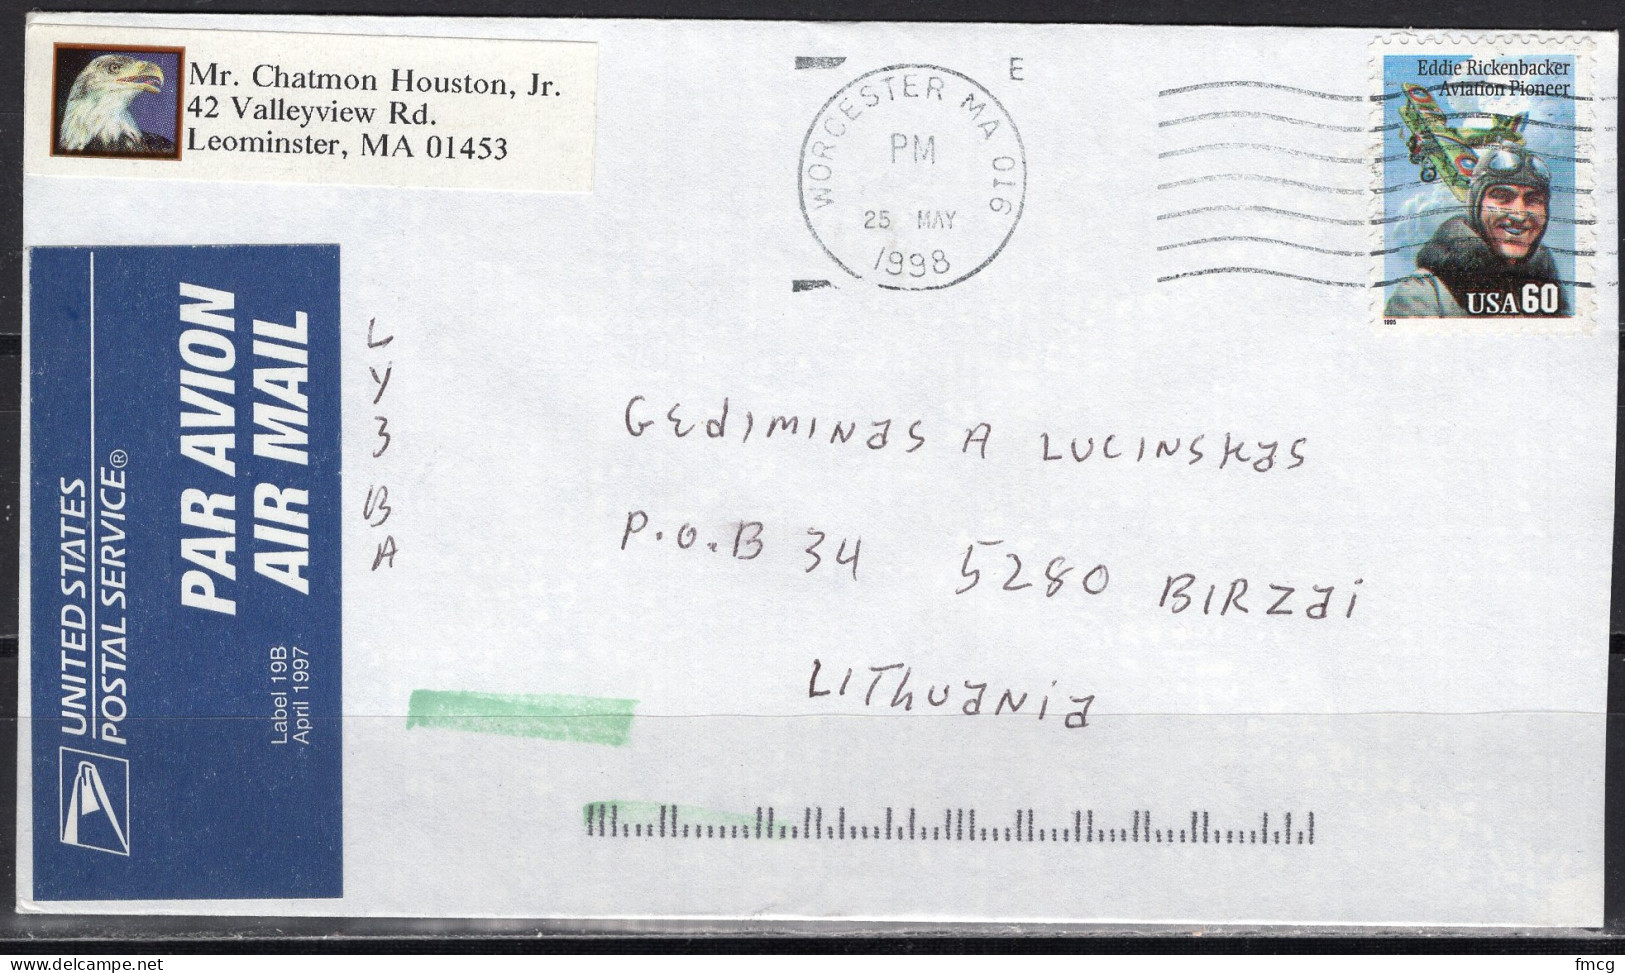 Mr. Chatmon Houston, Jr.
42 Valleyview Rd.
Leominster, MA 01453
WORCESTER MA 016
E
PM
25 MAY
1998
Eddie Rickenbacker
Aviation Pioneer
USA 60
1995
UNITED STATES
POSTAL SERVICE®
PAR AVION
AIR MAIL
Label 19B
April 1997
L
Y
3
B
A
GEdIMINaS A LUCINSKaS
P.O.B 34 5280 BIRZai
LIThUaNia
fmcg